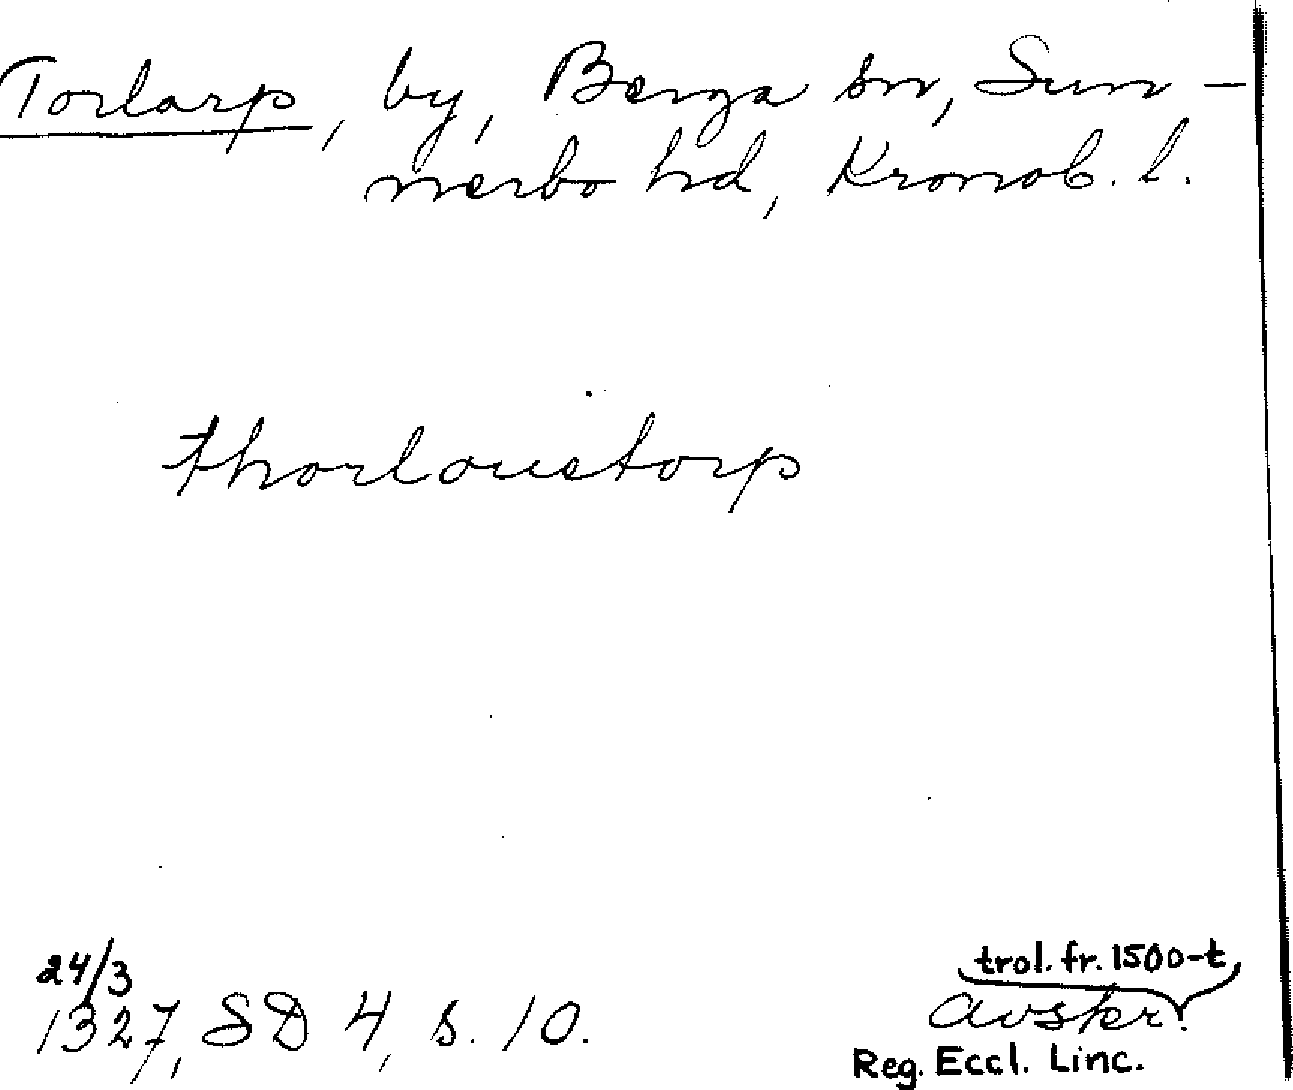 Torlarp, by, Berga sn, Sun-
nerbo hd, Kronob. l.
thorlouetorp
24/3
1327, SD 4, s. 10.
trol. fr. 1500-t,
avskr.
Reg. Eccl. Linc.